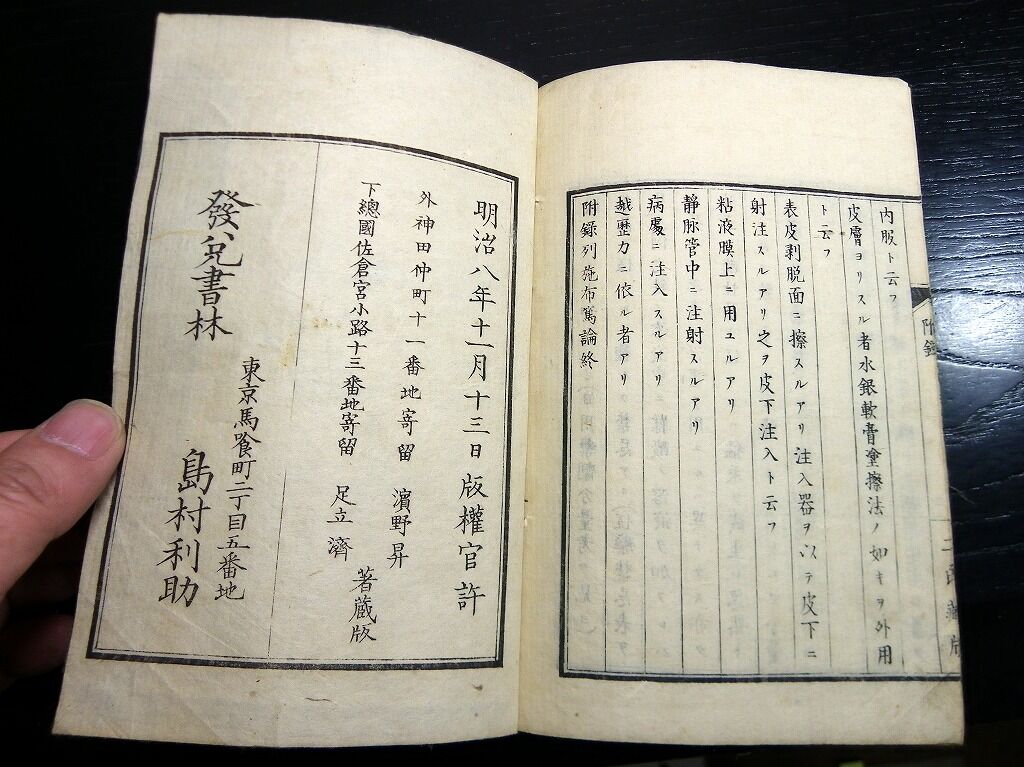 附錄
内服ト云フ
皮膚ヨリスル者水銀軟膏塗擦法ノ如キヲ外用
ト云フ
表皮剥脱面ニ擦スルアリ注入器ヲ以テ皮下ニ
射注スルアリ之ヲ皮下注入ト云フ
粘液膜上ニ用ユルアリ
靜脉管中ニ注射スルアリ
病處ニ注入スルアリ
越歴力ニ依ル者アリ
附錄列施布篤論終
明治八年十一月十三日版權官許
外神田仲町十一番地寄留 濱野昇
下總國佐倉宮小路十三番地寄留 足立濟
著蔵版
東京馬喰町二丁目五番地
發兌書林 島村利助